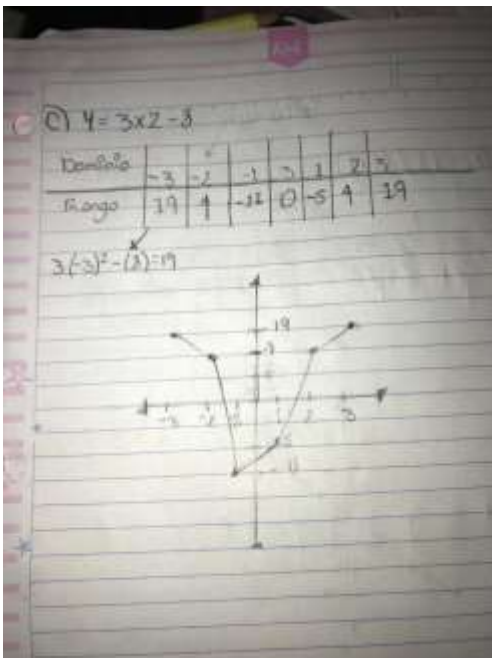 C) Y = 3x2 - 8
Dominio -3 -2 -1 0 1 2 3
Rango 19 4 -11 0 -5 4 19
3(-3)² - (8) = 19
19
-3 -2 1 2 3
-5
-11